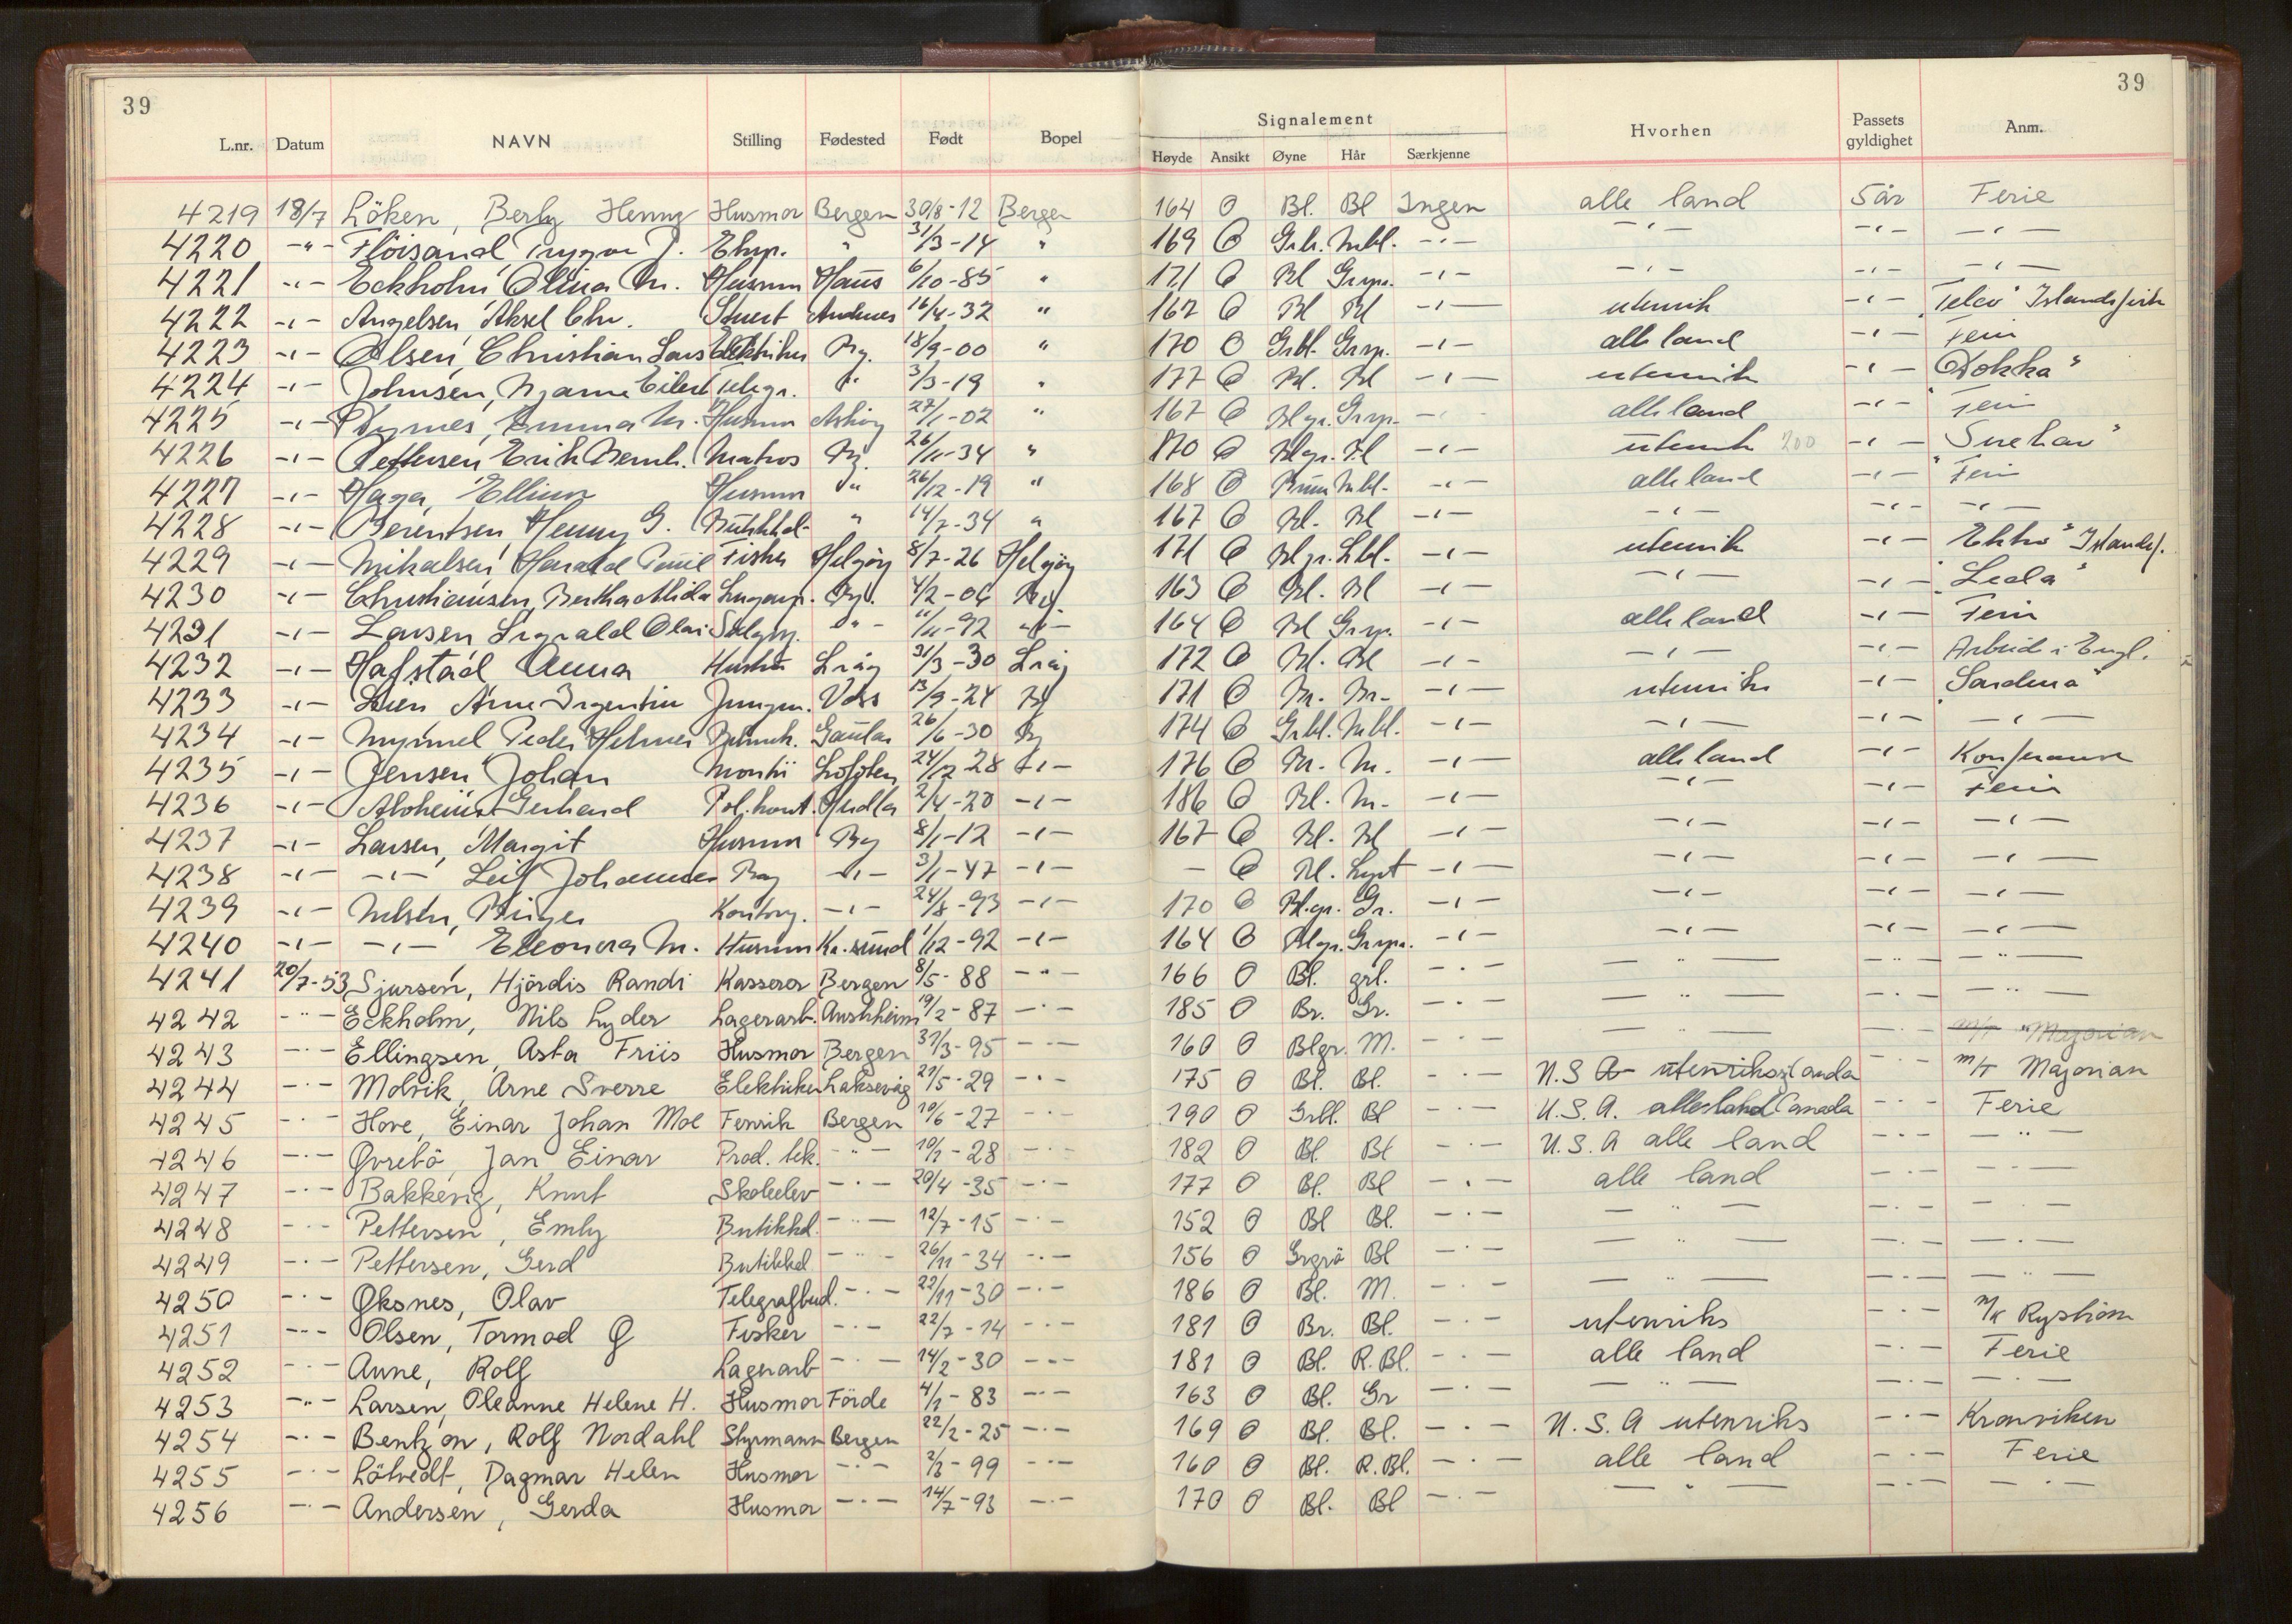 39 39
L.nr. Datum NAVN Stilling Fødested Født Bopel Signalement Hvorhen Passets gyldighet Anm.
Høyde Ansikt Øyne Hår Særkjenne
4219 18/7 Löken, Berly Henny Husmor Bergen 30/8-12 Bergen 164 O Bl. Bl Ingen alle land 5 år Ferie
4220 -"- Flöisand Trygve J. Eksp. " 31/3-14 " 169 O Grbr. Mbl. -"- -"- -"- -"-
4221 -"- Eckholm Olina M. Husmor Haus 6/10-85 " 171 O Bl Grspr. -"- -"- -"- -"-
4222 -"- Angelsen Aksel Chr. Stuert Andenes 16/4-32 " 162 O Bl Bl -"- utenrik -"- "Telco" Islandsfisk
4223 -"- Olsen, Christian Lars Elektriker Bg. 18/9-00 " 170 O Grbl. Grsp. -"- alle land -"- Ferie
4224 -"- Johnsen, Bjarne Eilert Telegr. " 3/3-19 " 177 O Bl. Bl -"- utenrik -"- "Dokka"
4225 -"- Dyrnes, Emma M. Husmor Askøy 27/1-02 " 167 O Blgr. Grsp. -"- alle land -"- Ferie
4226 -"- Pettersen Erik Bernh. Matros Bg. 26/11-34 " 170 O Blgr. Bl -"- utenrik 200 -"- "Snehav"
4227 -"- Haga, Ellinor Husmor " 26/12-19 " 168 O Brun Mbl. -"- alle land -"- Ferie
4228 -"- Berentsen, Henny G. Butikkd. " 14/7-34 " 167 O Bl. Bl -"- -"- -"- -"-
4229 -"- Mikalsen Harald Emil Fisker Helgöy 8/7-26 Helgöy 171 O Blgr. Lbl. -"- utenrik -"- "Ekko" Islandsf.
4230 -"- Christiansen, Bertha Alida Lugarp. Bg. 4/2-04 Bg. 163 O Bl. Bl -"- -"- -"- "Leda"
4231 -"- Larsen Sigvald Olai Selger. -"- 11/11-92 -"- 164 O Bl Grsp. -"- alle land -"- Ferie
4232 -"- Hafstad Anna Hushj. Lråg 31/3-30 Lråg 172 O Bl. Bl -"- -"- -"- Arbeid i Engl.
4233 -"- Lien Arne Ingentin Jungm. Voss 13/9-24 Bg 171 O M. M. -"- utenriks -"- "Sardena"
4234 -"- Mymmel Peder Helmer Gaular 26/6-30 Bg 174 O Grbl. Mbl. -"- -"- -"- -"-
4235 -"- Jensen Johan Montör Lofoten 24/12-28 -"- 176 O M. M. -"- alle land -"- Konferanse
4236 -"- Alvheim Gerhard Pol.konst. Herdla 2/4-20 -"- 186 O Bl. M. -"- -"- -"- Ferie
4237 -"- Larsen, Margit Husmor Bg 8/1-12 -"- 167 O Bl. Bl -"- -"- -"- -"-
4238 -"- -"- Leif Johannes Bg -"- 3/1-47 -"- - O Bl. Lyst -"- -"- -"- -"-
4239 -"- Nilsen, Birger Kontorg. -"- 24/8-93 -"- 170 O Bl.gr. Gr. -"- -"- -"- -"-
4240 -"- -"- Eleonora M. Husmor Kr.sund 1/12-92 -"- 164 O Blgr. Grspr. -"- -"- -"- -"-
4241 20/7-53 Sjursen, Hjördis Randi Kasserer Bergen 8/5-88 -"- 166 O Bl. grl. -"- -"- -"- -"-
4242 -"- Eckholm, Nils Lyder Lagerarb. Austrheim 19/2-87 -"- 185 O Br. Gr. -"- -"- -"- -"-
4243 -"- Ellingsen, Asta Friis Husmor Bergen 31/3-95 -"- 160 O Blgr. M. -"- -"- -"- m/T "Majorian
4244 -"- Molvik, Arne Sverre Elektriker Laksevåg 21/5-29 -"- 175 O Bl. Bl. -"- U.S.A utenriks Canada -"- m/T Majorian
4245 -"- Hove, Einar Johan Moe Fenrik Bergen 19/6-27 -"- 190 O Grbl. Bl -"- U.S.A. alle land Canada -"- Ferie
4246 -"- Øvrebö, Jan Einar Prod.tek. -"- 10/1-28 -"- 182 O Bl Bl -"- U.S.A alle land -"- -"-
4247 -"- Bakkevig, Knut Skoleelev -"- 20/4-35 -"- 177 O Bl. Bl -"- alle land -"- -"-
4248 -"- Pettersen, Emly Butikkd. -"- 12/7-15 -"- 152 O Bl Bl. -"- -"- -"- -"-
4249 -"- Pettersen, Gerd Butikkd -"- 26/11-34 -"- 156 O Grgrö Bl -"- -"- -"- -"-
4250 -"- Øksnes, Olav Telegrafbud. -"- 22/11-30 -"- 186 O Bl. M. -"- -"- -"- -"-
4251 -"- Olsen, Tormod G Fisker -"- 22/7-14 -"- 181 O Br. Bl. -"- utenriks -"- m/k Ryström
4252 -"- Aune, Rolf Lagerarb -"- 14/2-30 -"- 181 O Bl. R.Bl. -"- alle land -"- Ferie
4253 -"- Larsen, Oleanne Helene H. Husmor Förde 4/1-83 -"- 163 O Bl. Gr -"- -"- -"- -"-
4254 -"- Bentzon, Rolf Nordahl Styrmann Bergen 22/2-25 -"- 169 O Bl. Bl. -"- U.S.A utenriks -"- Kronviken
4255 -"- Lötvedt, Dagmar Helen Husmor -"- 2/8-99 -"- 160 O Bl. R.Bl. -"- alle land -"- Ferie
4256 -"- Andersen, Gerda Husmor -"- 14/7-93 -"- 170 O Bl. Bl -"- -"- -"- -"-